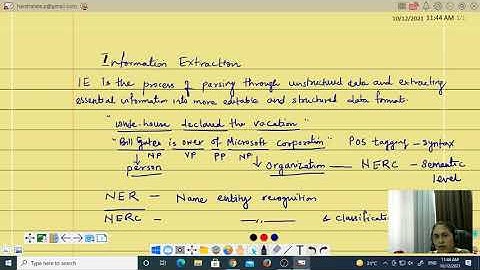 10/12/2021
11:44 AM 1/1
Information Extraction
IE Is the process of parsing through unstructured data and extracting
essential information into more editable and structured data formats.
"White-house declared the vacation"
"Bill Gates is owner of Microsoft corporation" POS tagging - syntax
NP VP PP NP
person Organization — NERC - semantic
level
NER - Name entity recognition
NERC - —,,— & classificati
Type here to search
31°C
ENG
11:44 AM
10/12/2021